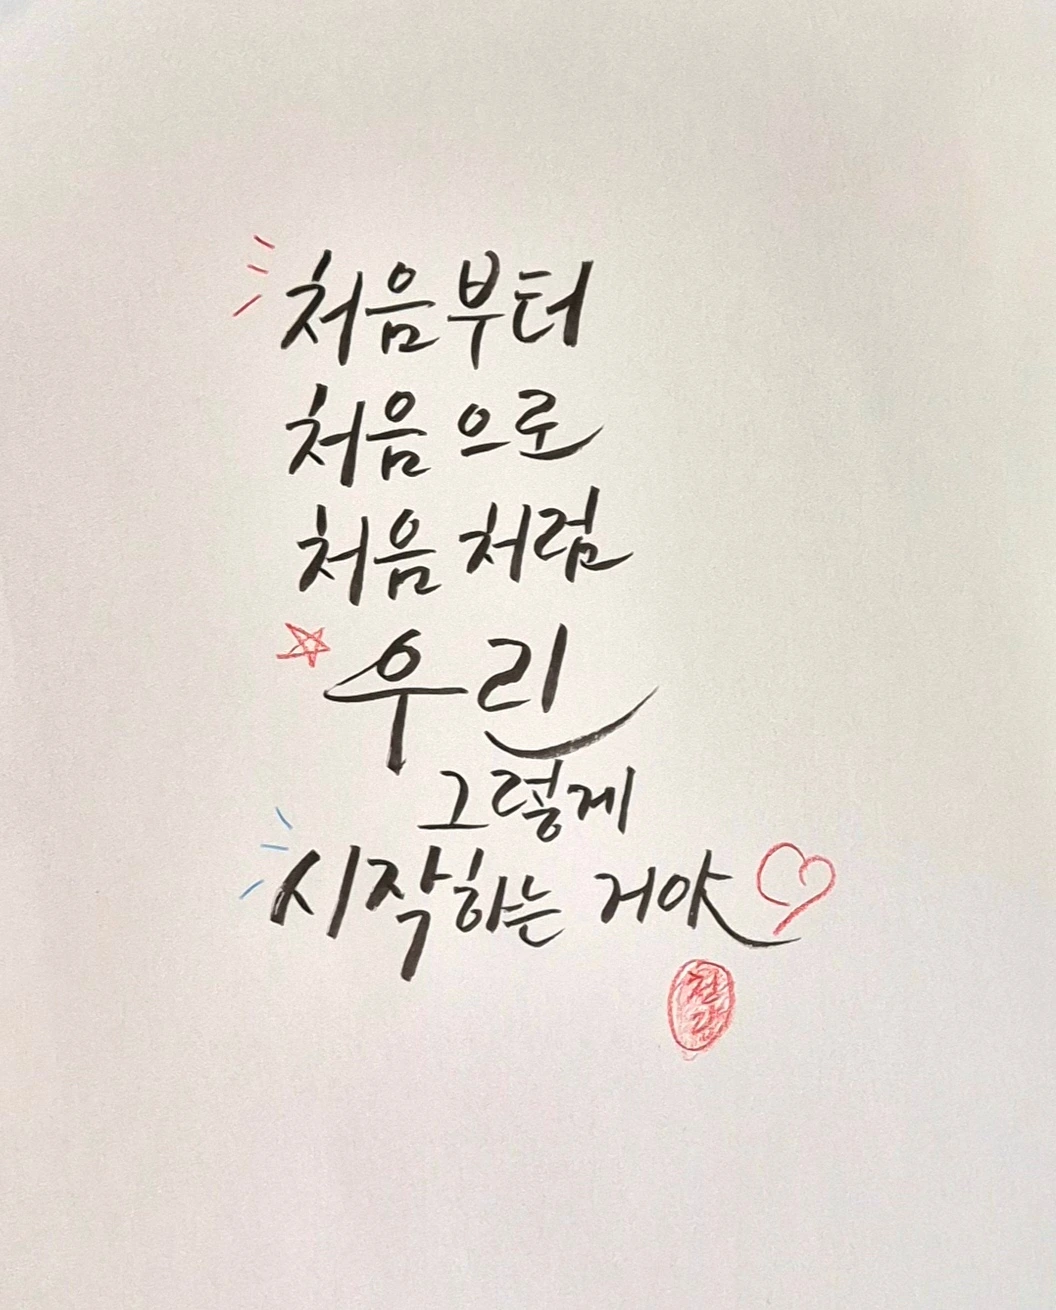 처음부터
처음으로
처음처럼
우리
그렇게
시작하는 거야